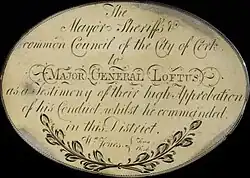 The
Mayor Sheriffs &
common Council of the City of Cork
to
MAJOR GENERAL LOFTUS
as a Testimony of their high Approbation
of his Conduct, whilst he commanded
in this District.